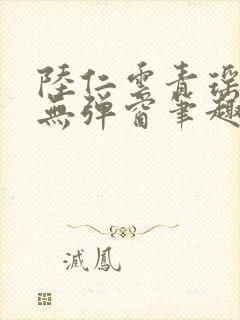 陸仁雲青瑤
無彈窗筆趣
滅鳳